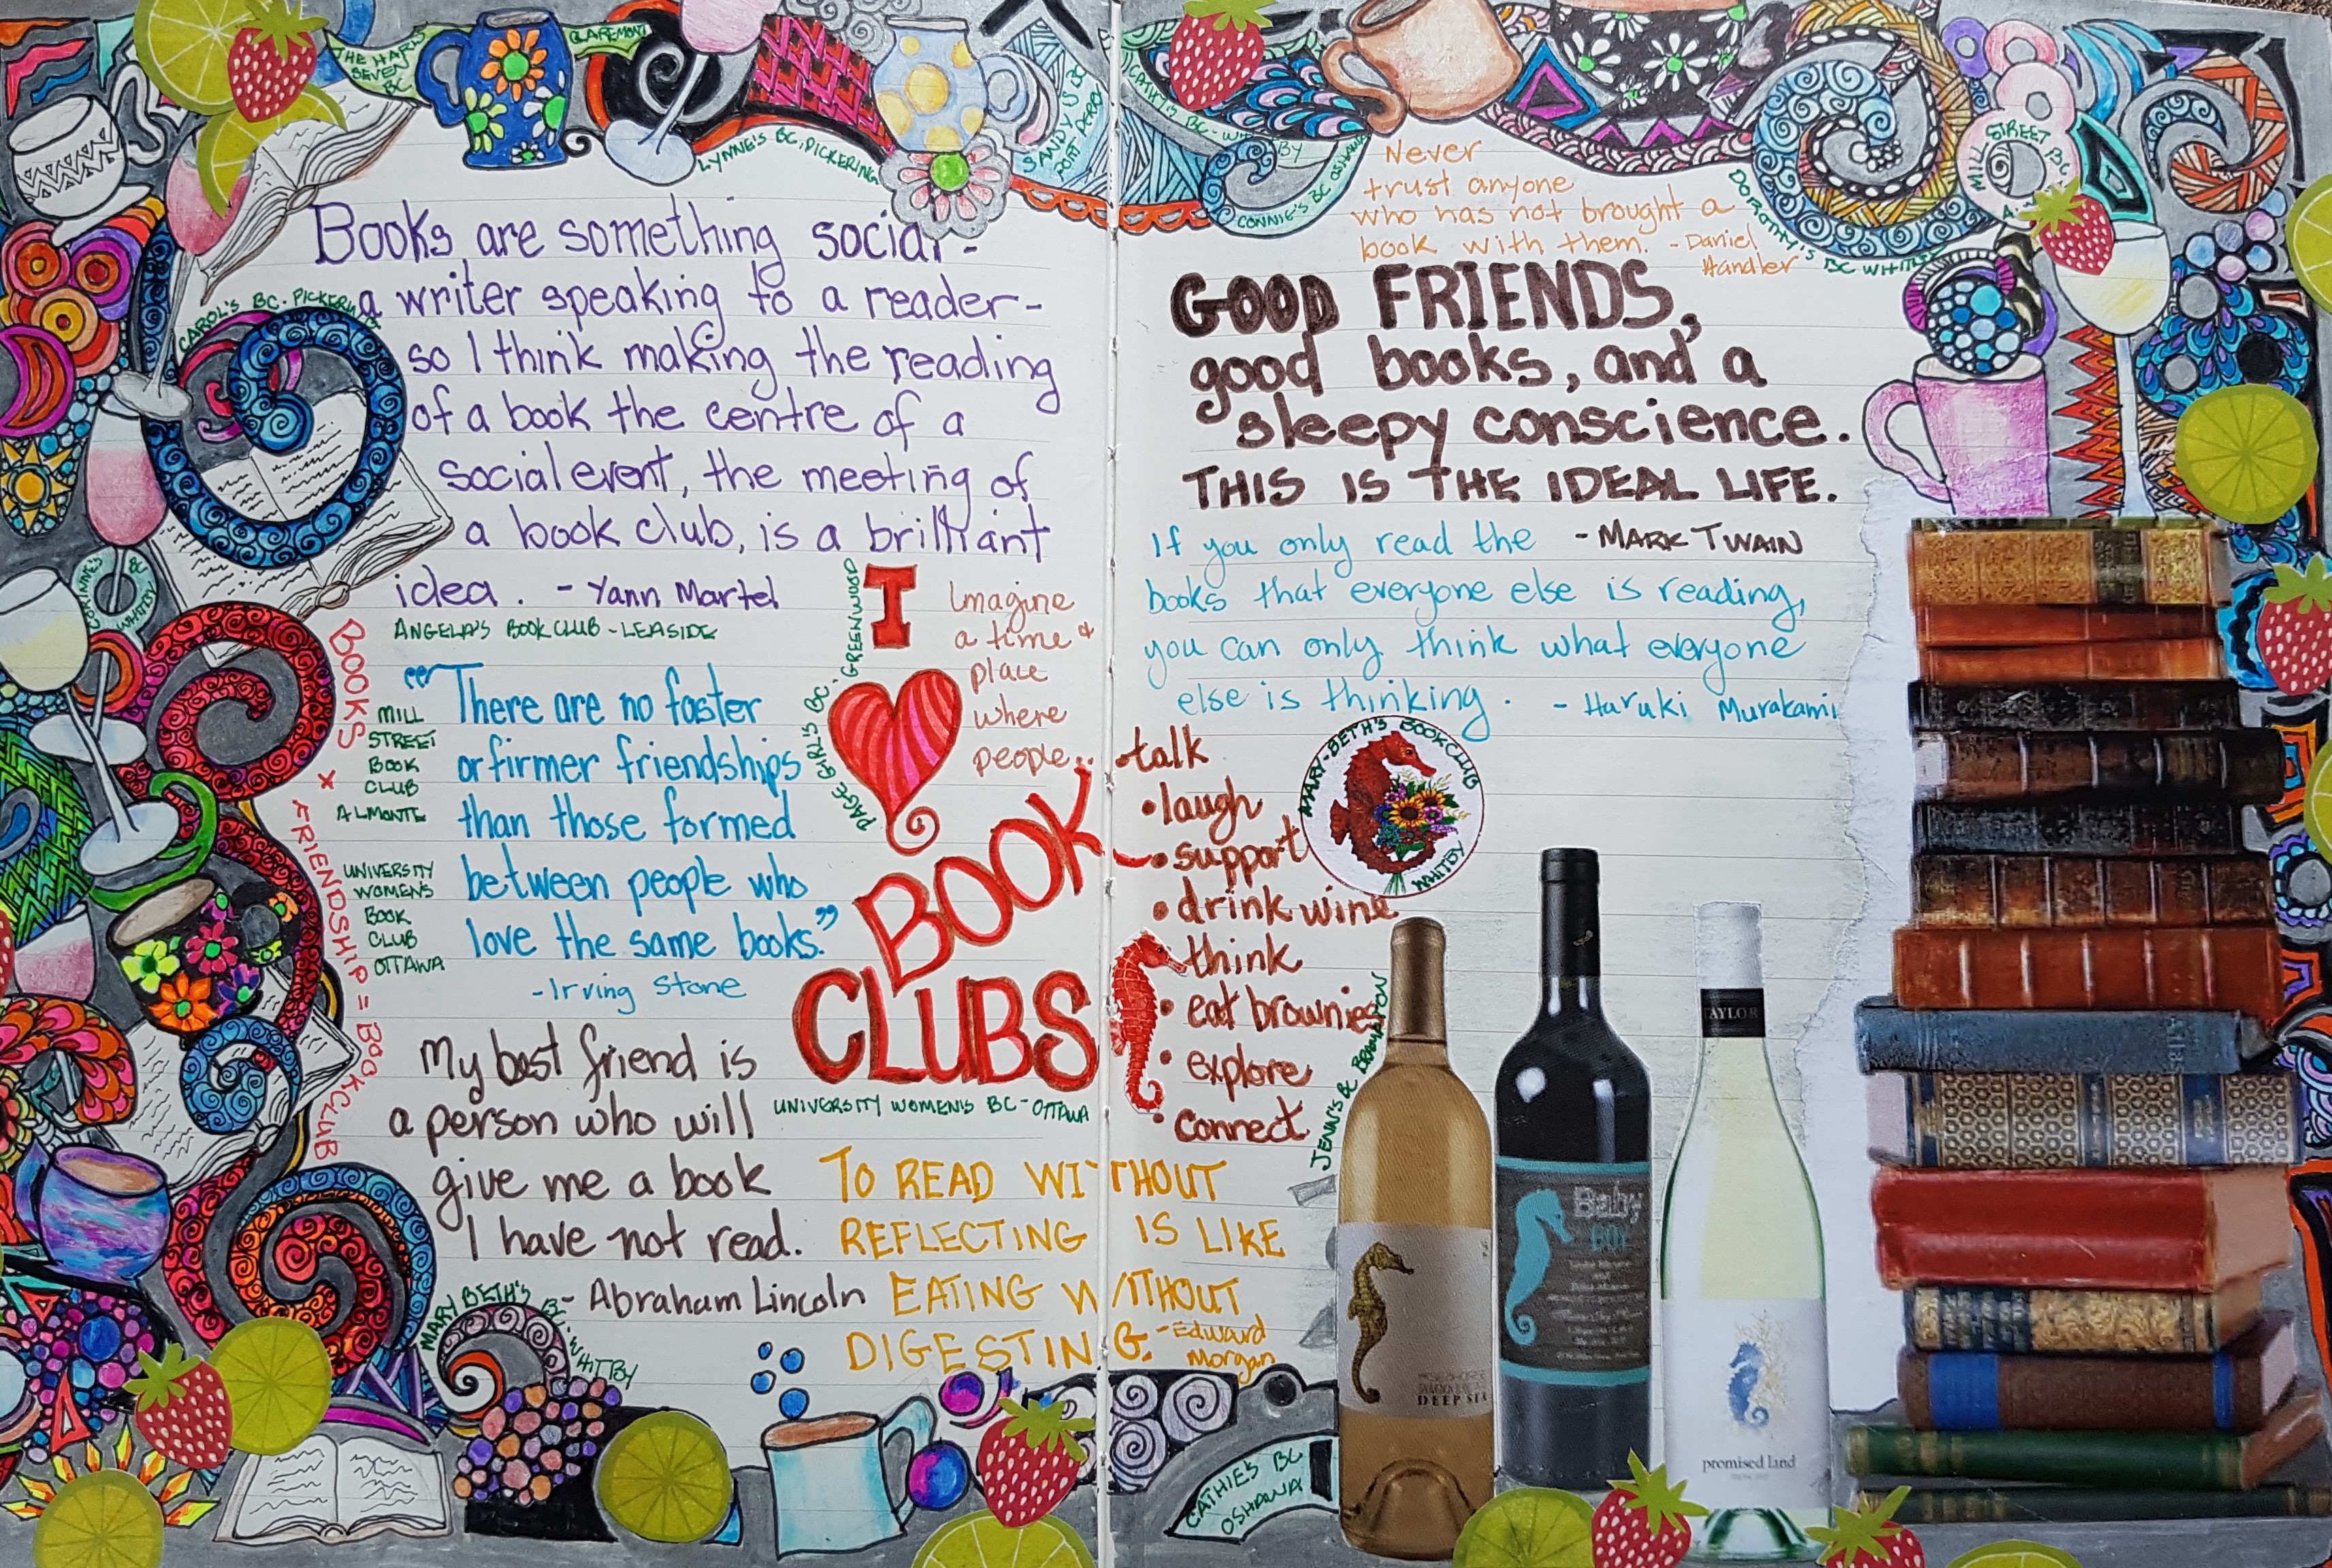 THE HARD
SEVEN
BC
CLAREMONT
LYNNE'S BC, PICKERING
SANDY'S BC
PORT PERRY
CAROL'S BC. PICKERING
Books are something social -
a writer speaking to a reader -
so I think making the reading
of a book the centre of a
social event, the meeting of
a book club, is a brilliant
idea. - Yann Martel
ANGELA'S BOOK CLUB - LEASIDE
CORINNE'S BC
WHITBY
BOOKS x FRIENDSHIP = BOOKCLUB
MILL
STREET
BOOK
CLUB
ALMONTE
UNIVERSITY
WOMEN'S
BOOK
CLUB
OTTAWA
"There are no faster
or firmer friendships
than those formed
between people who
love the same books."
- Irving Stone
PAGE GIRL'S BC - GREENWOOD
I
BOOK
CLUBS
UNIVERSITY WOMEN'S BC - OTTAWA
Imagine
a time &
place
where
people..
• talk
• laugh
• support
• drink wine
• think
• eat brownies
• explore
• connect
My best friend is
a person who will
give me a book
I have not read.
- Abraham Lincoln
MARY BETH'S BC - WHITBY
TO READ WITHOUT
REFLECTING IS LIKE
EATING WITHOUT
DIGESTING. - Edward
Morgan
CONNIE'S BC OSHAWA
Never
trust anyone
who has not brought a
book with them. - Daniel
Handler
DOROTHY'S BC WHITBY
MILL STREET BC
GOOD FRIENDS,
good books, and a
sleepy conscience.
THIS IS THE IDEAL LIFE.
- MARK TWAIN
If you only read the
books that everyone else is reading,
you can only think what everyone
else is thinking. - Haruki Murakami
MARY-BETH'S BOOKCLUB
WHITBY
JENN'S BC BRAMPTON
CATHIE'S BC
OSHAWA
DEEP SEA
Baby
TAYLOR
promised land